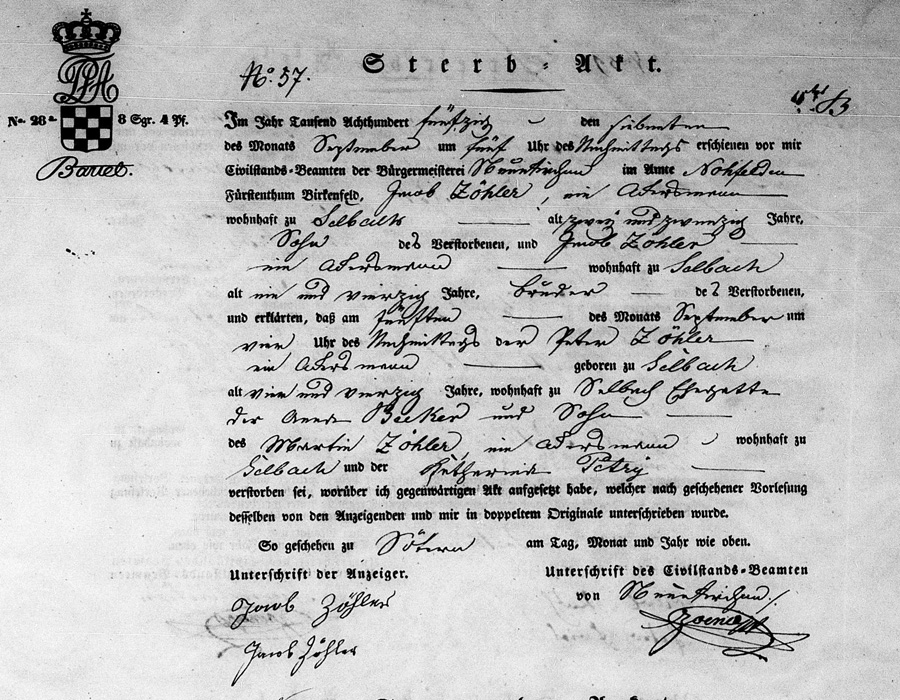 Sterb-Akt.
No. 57.
No. 28a. 8 Sgr. 4 Pf.
Im Jahr Tausend Achthundert fünfzig den siebenten
des Monats September um fünf Uhr des Nachmittags erschienen vor mir
Civilstands-Beamten der Bürgermeisterei Neunkirchen im Amte Nohfelden
Fürstenthum Birkenfeld, Jacob Zöhler, ein Ackersmann
wohnhaft zu Selbach alt zwei und zwanzig Jahre,
Sohn des Verstorbenen, und Jacob Zöhler
ein Ackersmann wohnhaft zu Selbach
alt ein und vierzig Jahre, Bruder des Verstorbenen,
und erklärten, daß am fünften des Monats September um
vier Uhr des Nachmittags der Peter Zöhler
ein Ackersmann geboren zu Selbach
alt vier und vierzig Jahre, wohnhaft zu Selbach Ehegatte
der Anna Becker und Sohn
des Martin Zöhler, ein Ackersmann wohnhaft zu
Selbach und der Katharina Petry
verstorben sei, worüber ich gegenwärtigen Akt aufgesetzt habe, welcher nach geschehener Vorlesung
desselben von den Anzeigenden und mir in doppeltem Originale unterschrieben wurde.
So geschehen zu Sötern am Tag, Monat und Jahr wie oben.
Unterschrift der Anzeiger. Unterschrift des Civilstands-Beamten
von Neunkirchen
Jacob Zöhler
Jacob Zöhler